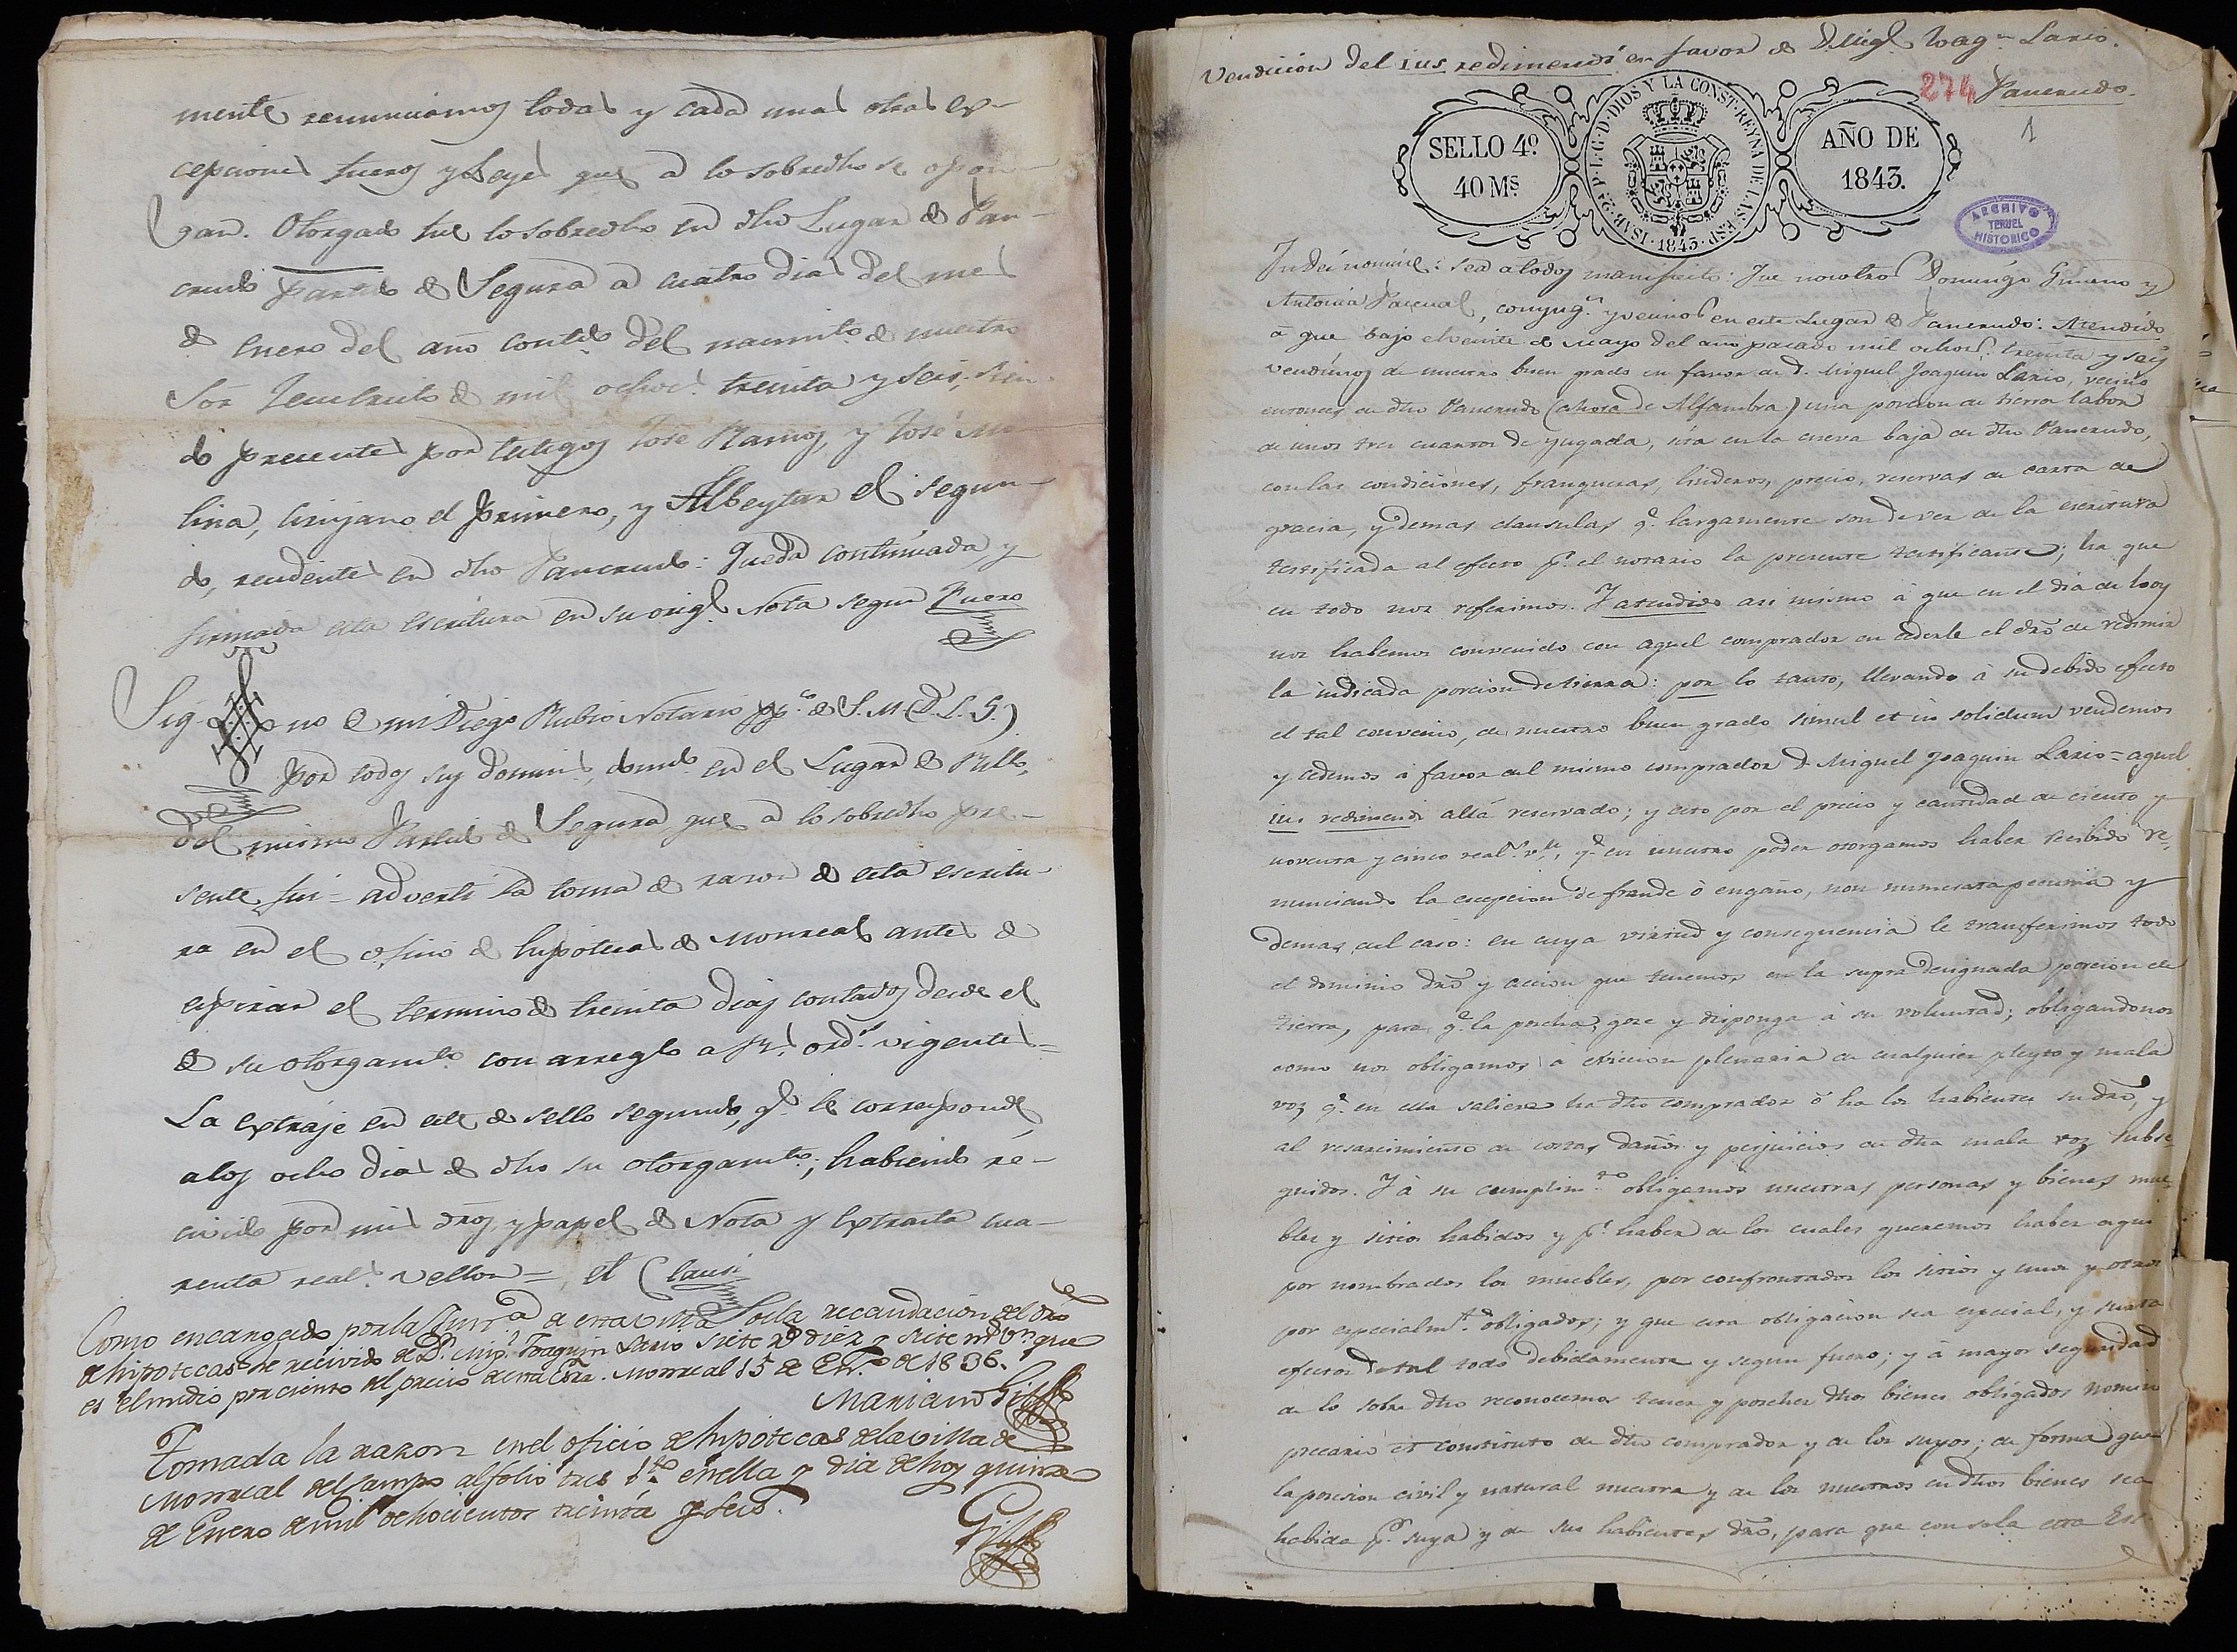 mente renunciamos todas y cada unas otras ex-
cepciones fueros y Leyes que a lo sobredho se opon-
gan. Otorgado fue lo sobredho en dho Lugar de Pan-
crudo Partido de Segura a cuatro dias del mes
de Enero del año contdo. del nacimto. de nuestro
Sor Jesucristo de mil ochoc.s treinta y seis, sien-
do presentes por testigos José Ramos, y José Mo-
lina, cirujano el primero, y Albeytar el segun-
do, residentes en dho Pancrudo: Queda continuada y
firmada esta escritura en su origl. Nota segun Fuero
Sig-no de mi Diego Rubio Notario pp.co de S.M. (D.L.G.)
por todos sus domins., domdo. en el Lugar de Rillo,
del mismo Partido de Segura que a lo sobredho pre-
sente fui = adverti la toma de razon de esta escritu-
ra en el oficio de hipotecas de Monreal antes de
espirar el termino de treinta dias contados desde el
de su otorgamto. con arreglo a Rs. ords. vigentes =
La extraje en este de sello segundo, qe. le corresponde,
a los ocho dias de dho su otorgamto.; habiendo re-
civido por mis dros, y papel de Nota y Extracta cua-
renta reals. vellon =, et Clausi
Como encargado por la de esta villa de la recaudacion del dro
de hipotecas he recivido de Dn. Migl. Joaquin Lario siete rs. diez y siete ms. vn. que
es el medio por ciento del precio de esta Esra. Monreal 15 de En.ro de 1836.
Mariano Gil
Tomada la razon en el oficio de hipotecas de la villa de
Monreal del Campo al folio tres en ella y dia de hoy quince
de Enero de mil ochocientos treinta y seis.
Gil
Vendicion del ius redimendi en favor de D. Migl. Joaqn. Lario.
274
Pancrudo.
1
SELLO 4º.
40 Ms.
ISAB. 2ª. P. L. G. D. DIOS Y LA CONST. REYNA DE LAS ESP. 1843.
AÑO DE
1843.
ARCHIVO
TERUEL
HISTORICO
In Dei nomine: sea a todos manifiesto: Que nosotros Domingo Gimeno y
Antonia Pascual, conyugs. y vecinos en este Lugar de Pancrudo: Atendido
a que bajo el veinte de Mayo del año pasado mil ochocs. treinta y seis
vendimos de nuestro buen grado en favor de D. Miguel Joaquin Lario, vecino
entonces en dho Pancrudo (ahora de Alfambra) una porcion de tierra labor
de unos tres cuartos de yugada, sita en la cueva baja de dho Pancrudo,
con las condiciones, franquezas, linderos, precio, reservas de carta de
gracia, y demas clausulas qe. largamente son de ver de la escritura
testificada al efecto pr. el notario la presente testificante; ha que
en todo nos referimos. Y atendido asi mismo à que en el dia de hoy
nos habemos convenido con aquel comprador en cederle el dro de redimir
la indicada porcion de tierra: por lo tanto, llevando à su debido efecto
el tal convenio, de nuestro buen grado simul et in solidum vendemos
y cedemos à favor del mismo comprador D. Miguel Joaquin Lario = aquel
ius redimendi allá reservado; y esto por el precio y cantidad de ciento y
noventa y cinco reals. vn., qe. en nuestro poder otorgamos haber recibido re-
nunciando la escepcion de fraude ò engaño, non numerata pecunia y
demas del caso: en cuya virtud y consequencia le transferimos todo
el dominio dro y accion que tenemos en la supra designada porcion de
tierra, para qe. la poseha, goze y disponga à su voluntad; obligandonos
como nos obligamos à eviccion plenaria de cualquier pleyto y mala
voz qe. en ella saliere ha dho comprador ò ha los habientes su dro, y
al resarcimiento de costas daños y perjuicios en dha mala voz subse-
guidos. Y à su cumplimto. obligamos nuestras personas y bienes mue-
bles y sitios habidos y pr. haber de los cuales queremos haber aqui
por nombrados los muebles, por confrontados los sitios y unos y otros
por especialmte. obligados; y que esta obligacion sea especial, y surta
efectos de tal todo debidamente y segun fuero; y à mayor seguridad
de lo sobre dho reconocemos tener y poseher dhos bienes obligados nomine
precario et constituto de dho comprador y de los suyos; de forma que
la posesion civil y natural nuestra y de los nuestros en dhos bienes sea
habida pr. suya y de sus habientes dro, para que con sola esta Es-